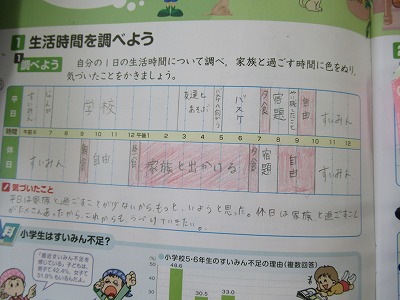 1 生活時間を調べよう
1 調べよう 自分の1日の生活時間について調べ，家族と過ごす時間に色をぬり，
気づいたことをかきましょう。
平日 すいみん 学校 友達とあそぶ バスケ 夕食 宿題 自由 すいみん
時間 午前6 7 8 9 10 11 12 午後1 2 3 4 5 6 7 8 9 10 11 12
休日 すいみん 自由 家族と出かける 夕食 宿題 自由 すいみん
気づいたこと
平日は家族と過ごすことが少ないから、もっと、いようと思った。休日は家族と過ごすこと
がたくさんあったから、これからもつづけていきたい。
小学生はすいみん不足？
「最近すいみん不足を
感じている」子どもは，
男子で42.4%，女子で
小学校5・6年生のすいみん不足の理由（複数回答）
50
40
30
48.6
30.5
33.0